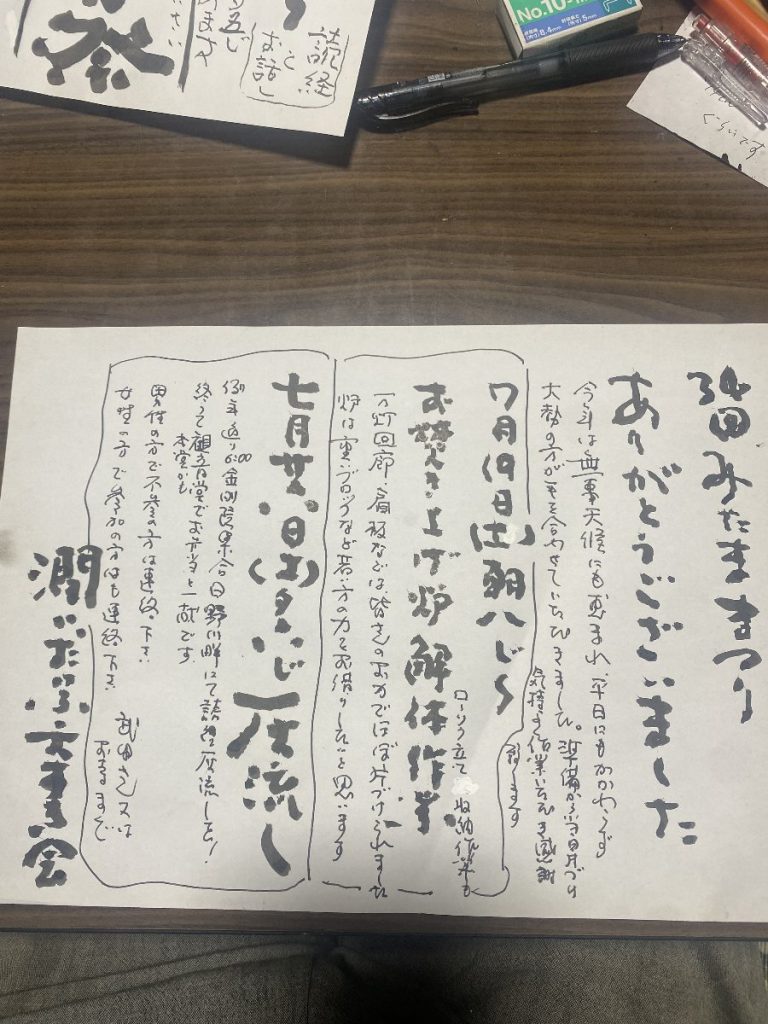 みたままつり
ありがとうございました
今年は無事天候にも恵まれ、平日にもかかわらず
大勢の方が手を合わせていただきました。準備から当日、片づけ
気持よく作業いただき感謝
致します
7月19日(土)朝八じ〜
お焚き上げ炉解体作業
ローソク立て収納作業も
万灯回廊、看板などは、皆さんのお力でほぼ片づけられました
炉は重いブロックなど若い方の力をお借りしたいと思います
七月廿六日(土)夕六じ 灯流し
例年通り6:00金剛院集合 日野川畔にて読経灯流しを!
終って観音堂でお弁当と一献です
本堂かも
男性の方で不参の方は連絡下さい
女性の方で参加の方はも連絡下さい
武田さん又は
お寺まで
読経
と
お話し
ます
さい
No.10-1
8.4mm
5mm
くらいです